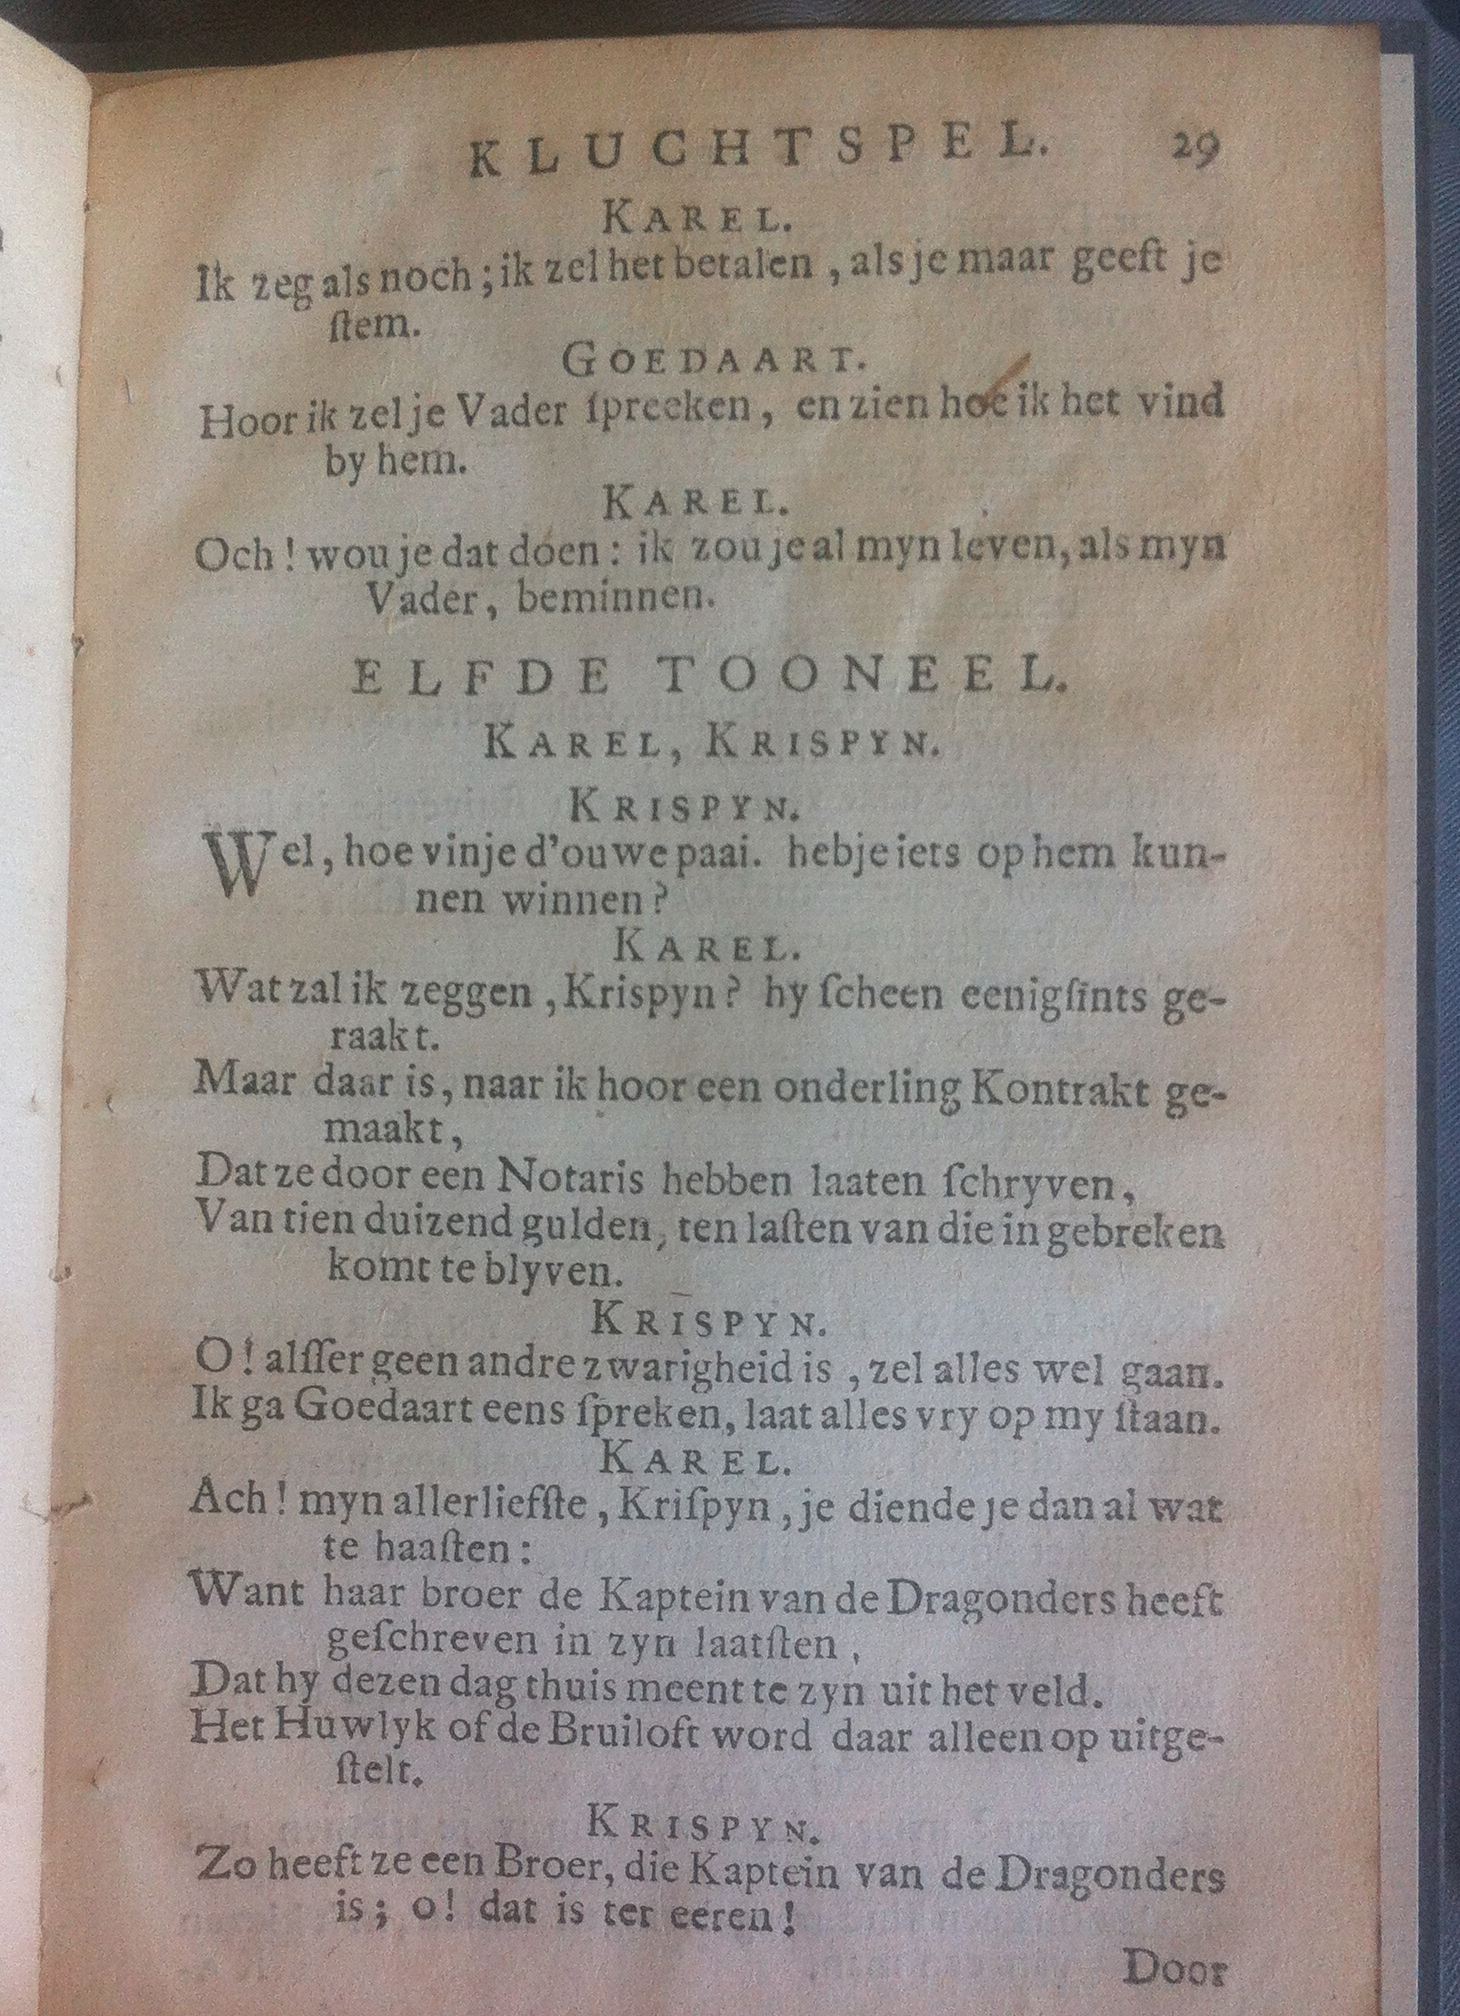 KLUCHTSPEL. 29
KAREL.
Ik zeg als noch; ik zel het betalen, als je maar geeft je
ſtem.
GOEDAART.
Hoor ik zel je Vader ſpreeken, en zien hoe ik het vind
by hem.
KAREL.
Och! wou je dat doen: ik zou je al myn leven, als myn
Vader, beminnen.
ELFDE TOONEEL.
KAREL, KRISPYN.
KRISPYN.
Wel, hoe vinje d'ouwe paai. hebje iets op hem kun-
nen winnen?
KAREL.
Wat zal ik zeggen, Krispyn? hy ſcheen eenigſints ge-
raakt.
Maar daar is, naar ik hoor een onderling Kontrakt ge-
maakt,
Dat ze door een Notaris hebben laaten ſchryven,
Van tien duizend gulden, ten laſten van die in gebreken
komt te blyven.
KRISPYN.
O! alſſer geen andre zwarigheid is, zel alles wel gaan.
Ik ga Goedaart eens ſpreken, laat alles vry op my ſtaan.
KAREL.
Ach! myn allerliefſte, Kriſpyn, je diende je dan al wat
te haaſten:
Want haar broer de Kaptein van de Dragonders heeft
geſchreven in zyn laatſten,
Dat hy dezen dag thuis meent te zyn uit het veld.
Het Huwlyk of de Bruiloft word daar alleen op uitge-
ſtelt.
KRISPYN.
Zo heeft ze een Broer, die Kaptein van de Dragonders
is; o! dat is ter eeren!
Door